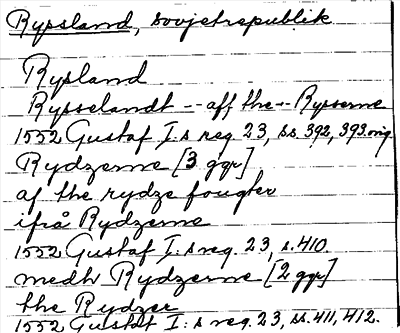 Ryssland, sovjetrepublik
Rysland
Rysselandt -- aff the -- Rysserne
1552 Gustaf I:s reg. 23, ss. 392, 393 orig
Rydzerne [3 ggr]
af the rydze fougter
ifrå Rydzerne
1552 Gustaf I:s reg. 23, s. 410.
medh Rydzerne [2 ggr]
the Rydzer
1552 Gustaf I:s reg. 23, ss. 411, 412.